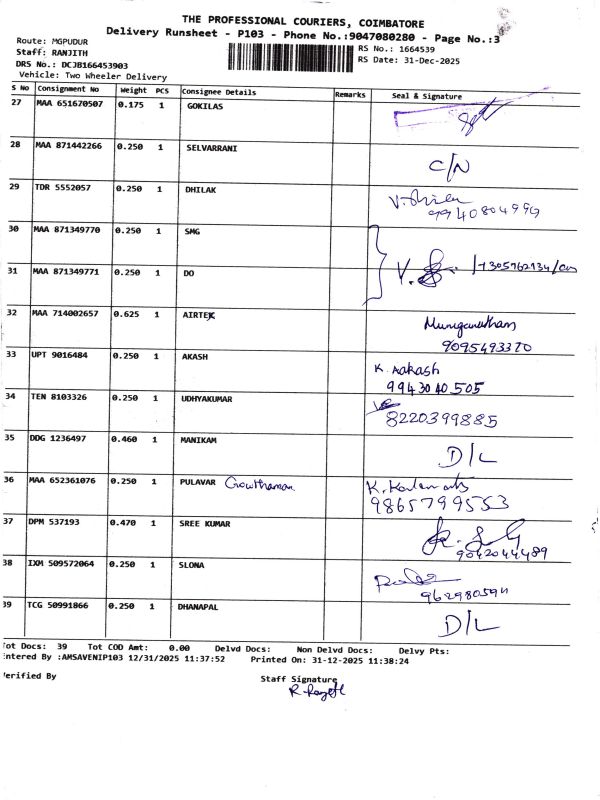 THE PROFESSIONAL COURIERS, COIMBATORE
Delivery Runsheet - P103 - Phone No.:9047080280 - Page No.:3
Route: MGPUDUR
Staff: RANJITH
RS No.: 1664539
DRS No.: DCJB166453903
RS Date: 31-Dec-2025
Vehicle: Two Wheeler Delivery
S No Consignment No Weight PCS Consignee Details Remarks Seal & Signature
27 MAA 651670507 0.175 1 GOKILAS
28 MAA 871442266 0.250 1 SELVARRANI C/N
29 TDR 5552057 0.250 1 DHILAK
9940804999
30 MAA 871349770 0.250 1 SMG
31 MAA 871349771 0.250 1 DO
32 MAA 714002657 0.625 1 AIRTEK Muruganatham
9095493370
33 UPT 9016484 0.250 1 AKASH K. Aakash
9943040505
34 TEN 8103326 0.250 1 UDHYAKUMAR
8220399885
35 DDG 1236497 0.460 1 MANIKAM D/L
36 MAA 652361076 0.250 1 PULAVAR Gowthaman
9865799553
37 DPM 537193 0.470 1 SREE KUMAR
9042044489
38 IXM 509572064 0.250 1 SLONA
39 TCG 50991866 0.250 1 DHANAPAL D/L
Tot Docs: 39 Tot COD Amt: 0.00 Delvd Docs: Non Delvd Docs: Delvy Pts:
Entered By :AMSAVENIP103 12/31/2025 11:37:52 Printed On: 31-12-2025 11:38:24
Verified By
Staff Signature